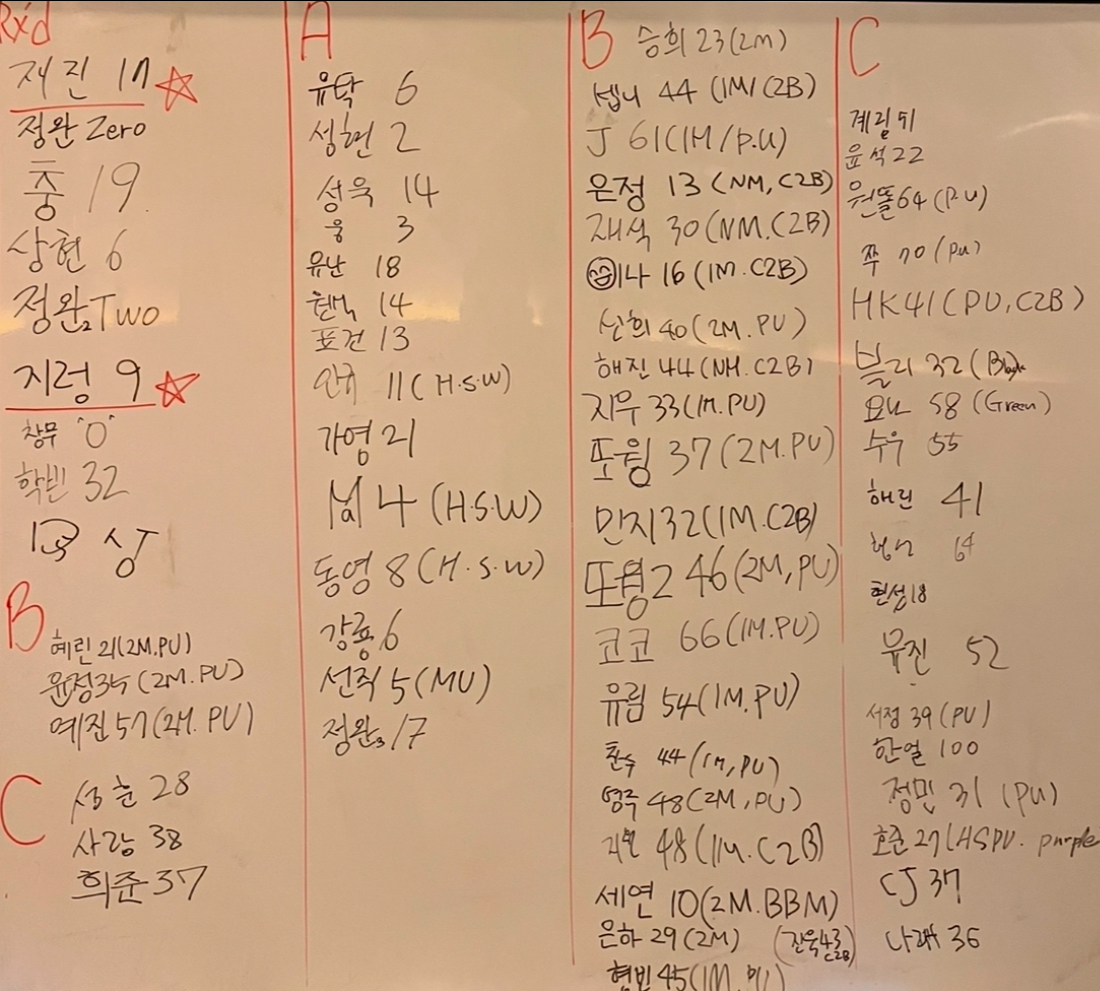 Rx'd
재진 17
정완 Zero
충 19
상현 6
정완2 Two
지령 9
창무 "0"
학빈 32
상
B
혜린 21(2M.PU)
윤정 35 (2M.PU)
예진 57(2M.PU)
C
성훈 28
사랑 38
희준 37
A
유탁 6
성현 2
성욱 14
웅 3
유난 18
14
표건 13
11(H.S.W)
가영 21
4 (H.S.W)
동영 8(H.S.W)
강룡 6
선쥐 5(MU)
정완3 17
B
승희 23(2M)
셉니 44 (1M/C2B)
J 61(1M/P.U)
은정 13 (NM, C2B)
재석 30(NM.C2B)
이나 16 (1M.C2B)
신희 40(2M.PU)
해진 44(NM.C2B)
지우 33(1M.PU)
또윙 37(2M.PU)
민지 32(1M.C2B)
또윙2 46(2M,PU)
코코 66(1M.PU)
유림 54(1M.PU)
찬수 44(1M,PU)
영주 48(2M,PU)
48(1M.C2B)
세연 10(2M.BBM)
은하 29(2M)
(진욱 43 C2B)
현빈 45(1M.
C
계림 51
윤석 22
원똘 64(P.U)
쭈 70(PU)
HK 41(PU,C2B)
블리 32(
요나 58 (Green)
수우 55
해린 41
64
현성 18
유진 52
서정 39(PU)
한얼 100
정민 31 (PU)
호준 27(HSPU. purple
CJ 37
나래 36